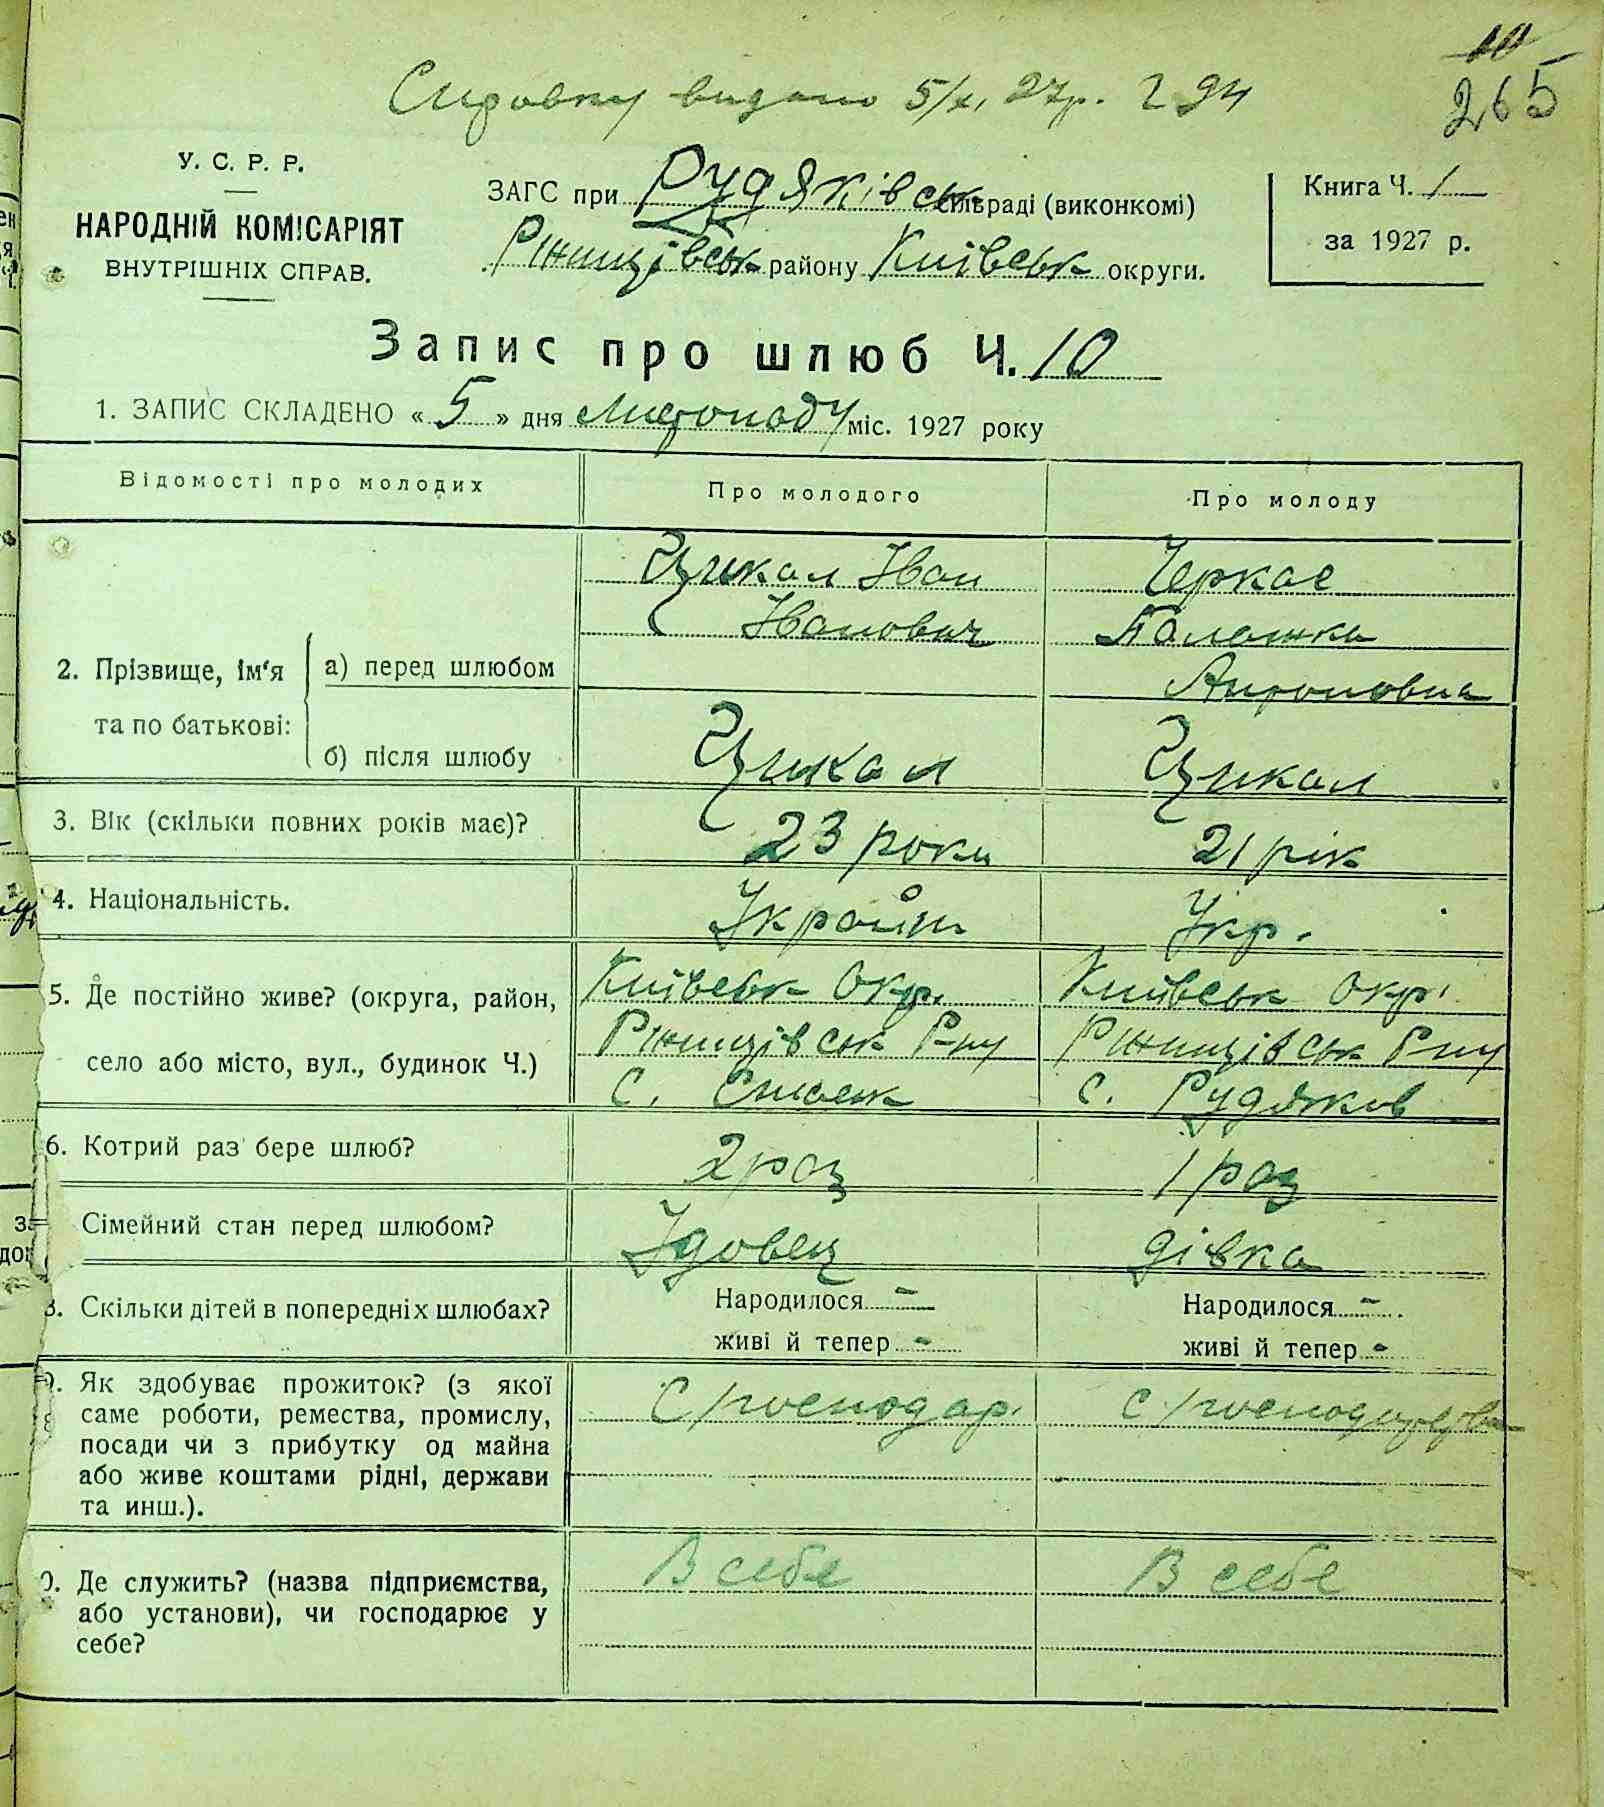 10
265
Справку видано 5/XI, 27р. 294
У. С. Р. Р.
НАРОДНІЙ КОМІСАРІЯТ
ВНУТРІШНІХ СПРАВ.
ЗАГС при Рудяківськ сільраді (виконкомі)
Ржищівськ району Київськ округи.
Книга Ч. 1
за 1927 р.
Запис про шлюб Ч. 10
1. ЗАПИС СКЛАДЕНО « 5 » дня Листопаду міс. 1927 року
Відомості про молодих
Про молодого
Про молоду
2. Прізвище, ім'я та по батькові:
а) перед шлюбом
Цикал Іван
Іванович
Черкас
Палажка
Антоновна
б) після шлюбу
Цикал
Цикал
3. Вік (скільки повних років має)?
23 роки
21 рік
4. Національність.
Україн
Укр.
5. Де постійно живе? (округа, район,
село або місто, вул., будинок Ч.)
Київськ Окр.
Ржищівськ Р-ну
С.
Київськ Окр.
Ржищівськ Р-ну
С. Рудяков
6. Котрий раз бере шлюб?
2 раз
1 раз
Сімейний стан перед шлюбом?
Удовец
дівка
8. Скільки дітей в попередніх шлюбах?
Народилося -
живі й тепер -
Народилося -
живі й тепер -
9. Як здобуває прожиток? (з якої
саме роботи, ремества, промислу,
посади чи з прибутку од майна
або живе коштами рідні, держави
та инш.).
С/господар.
С/господарство
0. Де служить? (назва підприємства,
або установи), чи господарює у
себе?
В себе
В себе